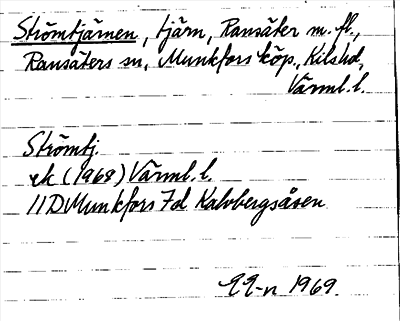 Strömtjärnen, tjärn, Ransäter m. fl.,
Ransäters sn, Munkfors köp., Kils hd,
Värml. l.
Strömtj.
ek (1968) Värml. l.
11D Munkfors 7d Kalvbergsåsen
EE-n 1969.